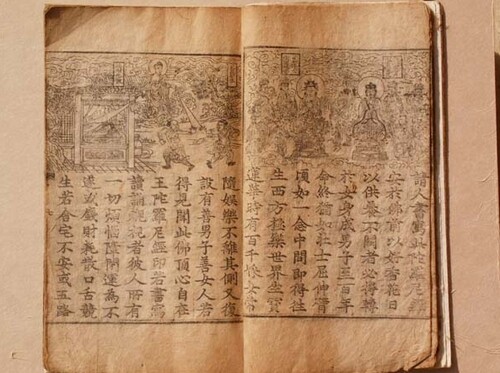 請人書寫此陀羅尼經
安於佛前以好香花日
以供養不闕者必得轉
於女身成男子至百年
命終猶如壯士屈伸臂
頃如一念中間即得往
生西方極樂世界坐寶
蓮華時有百千婇女常
隨娛樂不離其側又復
設有善男子善女人若
得見聞此佛頂心自在
王陀羅尼經印若書寫
讀誦觀視者彼人所有
一切煩惱障閉為不
遂及錢財耗散口舌競
生若舍宅不安或五路